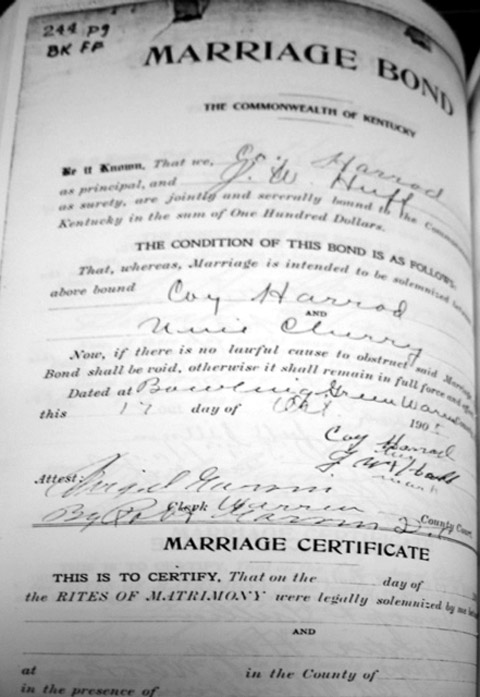 244 pg
BK FP
MARRIAGE BOND
THE COMMONWEALTH OF KENTUCKY
Be it Known, That we, Coy Harrod
as principal, and J. W. Huff
as surety, are jointly and severally bound to the Common
Kentucky in the sum of One Hundred Dollars.
THE CONDITION OF THIS BOND IS AS FOLLOWS:
That, whereas, Marriage is intended to be solemnized between
above bound Coy Harrod
AND
Cherry
Now, if there is no lawful cause to obstruct said Marriage
Bond shall be void, otherwise it shall remain in full force and effe
Dated at Bowling Green Warren
this 17 day of Oct 190
Coy Harrod
J. W. Huff
mark
Attest:
By Clerk Warren County Court.
MARRIAGE CERTIFICATE
THIS IS TO CERTIFY, That on the day of
the RITES OF MATRIMONY were legally solemnized by me betw
AND
at in the County of
in the presence of